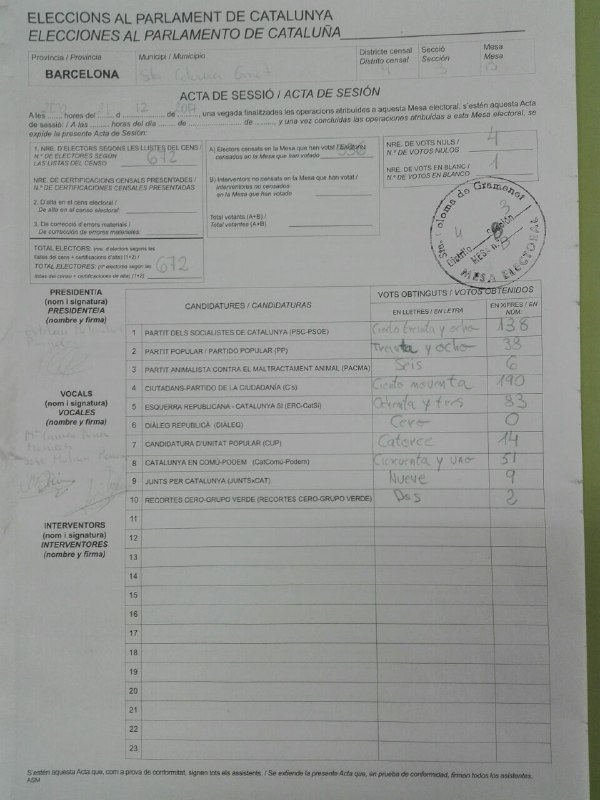 ELECCIONS AL PARLAMENT DE CATALUNYA
ELECCIONES AL PARLAMENTO DE CATALUÑA
Província / Provincia
BARCELONA
Municipi / Municipio
Sta Coloma Gmet
Districte censal
Distrito censal
4
Secció
Sección
3
Mesa
Mesa
B
ACTA DE SESSIÓ / ACTA DE SESIÓN
A les 20 hores del 21 d 12 de 2017, una vegada finalitzades les operacions atribuïdes a aquesta Mesa electoral, s'estén aquesta Acta
de sessió / A las ...... horas del día ...... de ...... de ......, y una vez concluidas las operaciones atribuidas a esta Mesa electoral, se
expide la presente Acta de Sesión:
1. NRE. D'ELECTORS SEGONS LES LLISTES DEL CENS /
N.º DE ELECTORES SEGÚN
LAS LISTAS DEL CENSO
672
NRE. DE CERTIFICACIONS CENSALS PRESENTADES /
N.º DE CERTIFICACIONES CENSALES PRESENTADAS
2. D'alta en el cens electoral /
De alta en el censo electoral:
3. De correcció d'errors materials /
De corrección de errores materiales:
TOTAL ELECTORS: (nre. d'electors segons les
llistes del cens + certificacions d'alta) (1+2) /
TOTAL ELECTORES: (nº electores según las
listas del censo + certificaciones de alta) (1+2)
672
A) Electors censats en la Mesa que han votat / Electores
censados en la Mesa que han votado
B) Interventors no censats en la Mesa que han votat /
Interventores no censados
en la Mesa que han votado
Total votants (A+B) /
Total votantes (A+B)
NRE. DE VOTS NULS /
N.º DE VOTOS NULOS
4
NRE. DE VOTS EN BLANC /
N.º DE VOTOS EN BLANCO
1
Sta. Coloma de Gramenet
Distrito 4
Sección 3
Mesa B
MESA ELECTORAL
PRESIDENT/A
(nom i signatura)
PRESIDENTE/A
(nombre y firma)
VOCALS
(nom i signatura)
VOCALES
(nombre y firma)
INTERVENTORS
(nom i signatura)
INTERVENTORES
(nombre y firma)
CANDIDATURES / CANDIDATURAS
VOTS OBTINGUTS / VOTOS OBTENIDOS
EN LLETRES / EN LETRA
EN XIFRES / EN NÚM.
1 PARTIT DELS SOCIALISTES DE CATALUNYA (PSC-PSOE) Ciento treinta y ocho 138
2 PARTIT POPULAR / PARTIDO POPULAR (PP) Treinta y ocho 38
3 PARTIT ANIMALISTA CONTRA EL MALTRACTAMENT ANIMAL (PACMA) Seis 6
4 CIUTADANS-PARTIDO DE LA CIUDADANÍA (C's) Ciento noventa 190
5 ESQUERRA REPUBLICANA - CATALUNYA SÍ (ERC-CatSí) Ochenta y tres 83
6 DIÀLEG REPUBLICÀ (DIÀLEG) Cero 0
7 CANDIDATURA D'UNITAT POPULAR (CUP) Catorce 14
8 CATALUNYA EN COMÚ-PODEM (CatComú-Podem) Cincuenta y uno 51
9 JUNTS PER CATALUNYA (JUNTSxCAT) Nueve 9
10 RECORTES CERO-GRUPO VERDE (RECORTES CERO-GRUPO VERDE) Dos 2
11
12
13
14
15
16
17
18
19
20
21
22
23
S'estén aquesta Acta que, com a prova de conformitat, signen tots els assistents. / Se extiende la presente Acta que, en prueba de conformidad, firman todos los asistentes.
ASM